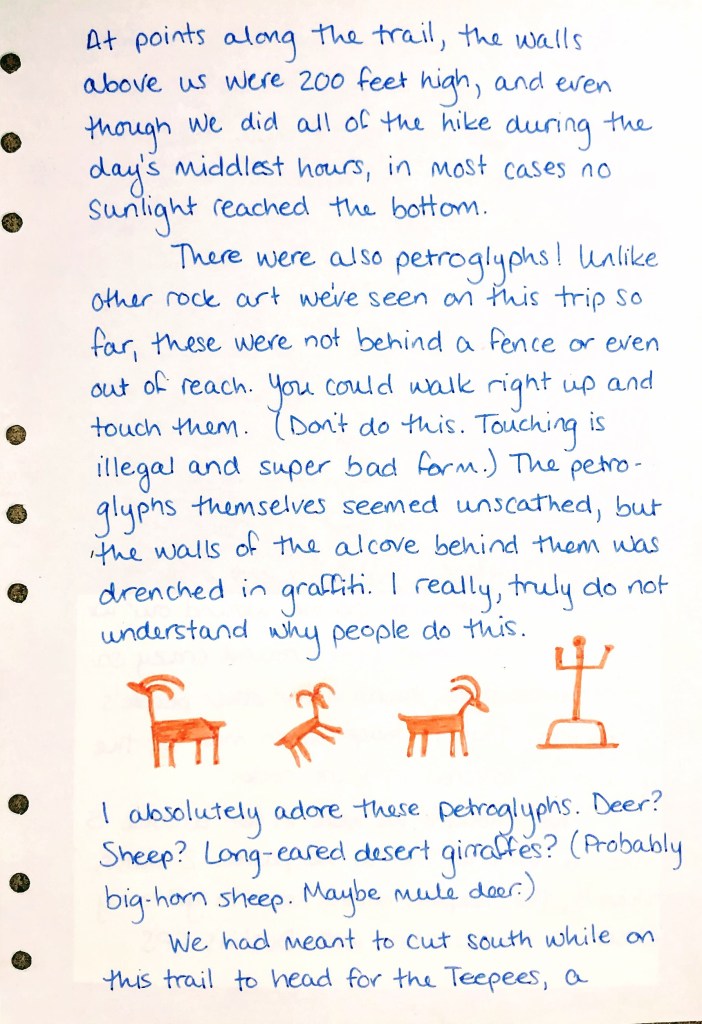 At points along the trail, the walls
above us were 200 feet high, and even
though we did all of the hike during the
day's middlest hours, in most cases no
sunlight reached the bottom.
There were also petroglyphs! Unlike
other rock art we've seen on this trip so
far, these were not behind a fence or even
out of reach. You could walk right up and
touch them. (Don't do this. Touching is
illegal and super bad form.) The petro-
glyphs themselves seemed unscathed, but
the walls of the alcove behind them was
drenched in graffiti. I really, truly do not
understand why people do this.
I absolutely adore these petroglyphs. Deer?
Sheep? Long-eared desert girraffes? (Probably
big-horn sheep. Maybe mule deer.)
We had meant to cut south while on
this trail to head for the Teepees, a